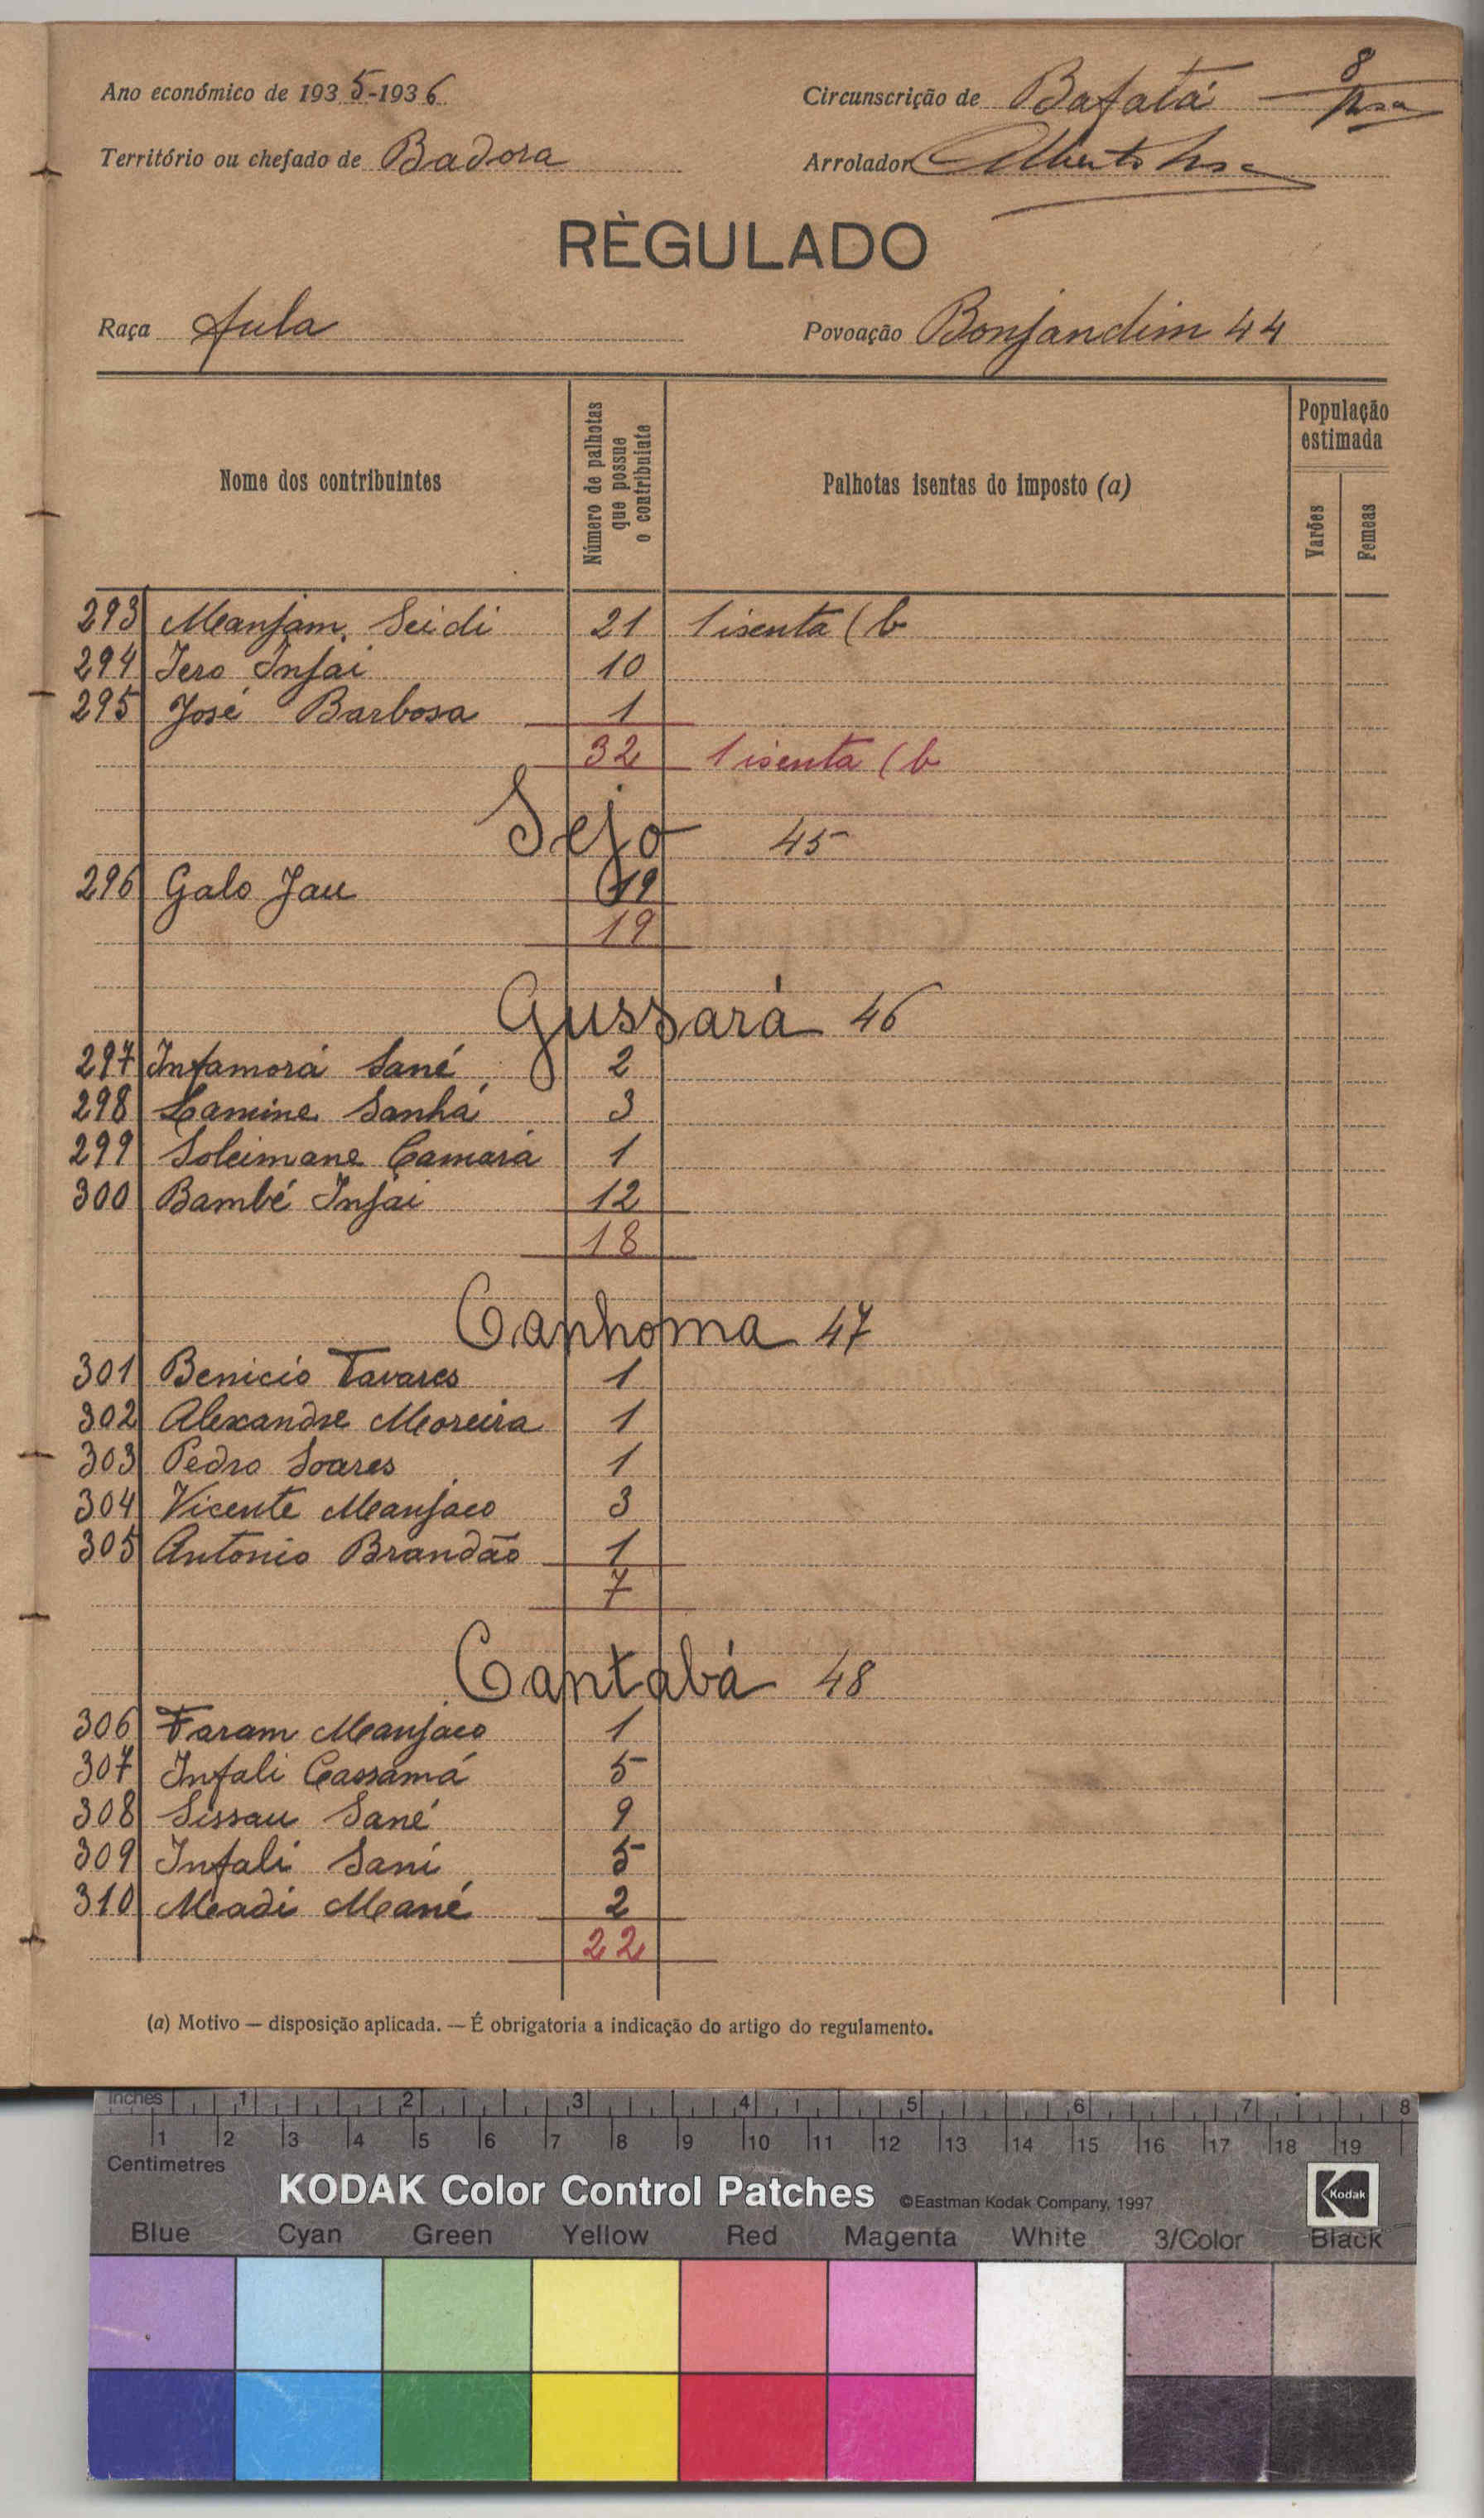 Ano económico de 1935-1936
Circunscrição de Bafatá 8
Território ou chefado de Badora
Arrolador Alberto
RÈGULADO
Raça fula
Povoação Bonjandim 44
Nome dos contribuintes
Número de palhotas que possue o contribuinte
Palhotas isentas do imposto (a)
População estimada
Varões
Femeas
293 Manjam Seidi 21 1 isenta (b
294 Iero Injai 10
295 José Barbosa 1
32 1 isenta (b
Sejo 45
296 Galo Jau 19
19
Gussará 46
297 Infamorá Sané 2
298 Lamine Sanhá 3
299 Soleimane Camará 1
300 Bambé Injai 12
18
Canhoma 47
301 Benicio Tavares 1
302 Alexandre Moreira 1
303 Pedro Soares 1
304 Vicente Manjaco 3
305 Antonio Brandão 1
7
Cantabá 48
306 Faram Manjaco 1
307 Infali Cassamá 5
308 Sissau Sané 9
309 Infali Sani 5
310 Meadi Mané 2
22
(a) Motivo — disposição aplicada. — É obrigatoria a indicação do artigo do regulamento.
Inches 1 2 3 4 5 6 7 8
1 2 3 4 5 6 7 8 9 10 11 12 13 14 15 16 17 18 19
Centimetres
KODAK Color Control Patches ©Eastman Kodak Company, 1997 Kodak
Blue Cyan Green Yellow Red Magenta White 3/Color Black